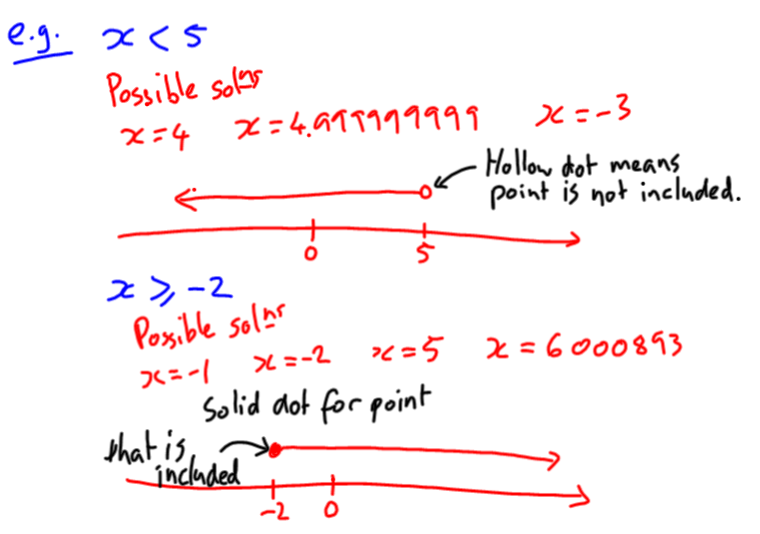 e.g. x < 5
Possible solns
x = 4 x = 4.999999999 x = -3
Hollow dot means
point is not included.
0 5
x ⩾ -2
Possible solns
x = -1 x = -2 x = 5 x = 6000893
Solid dot for point
that is
included
-2 0